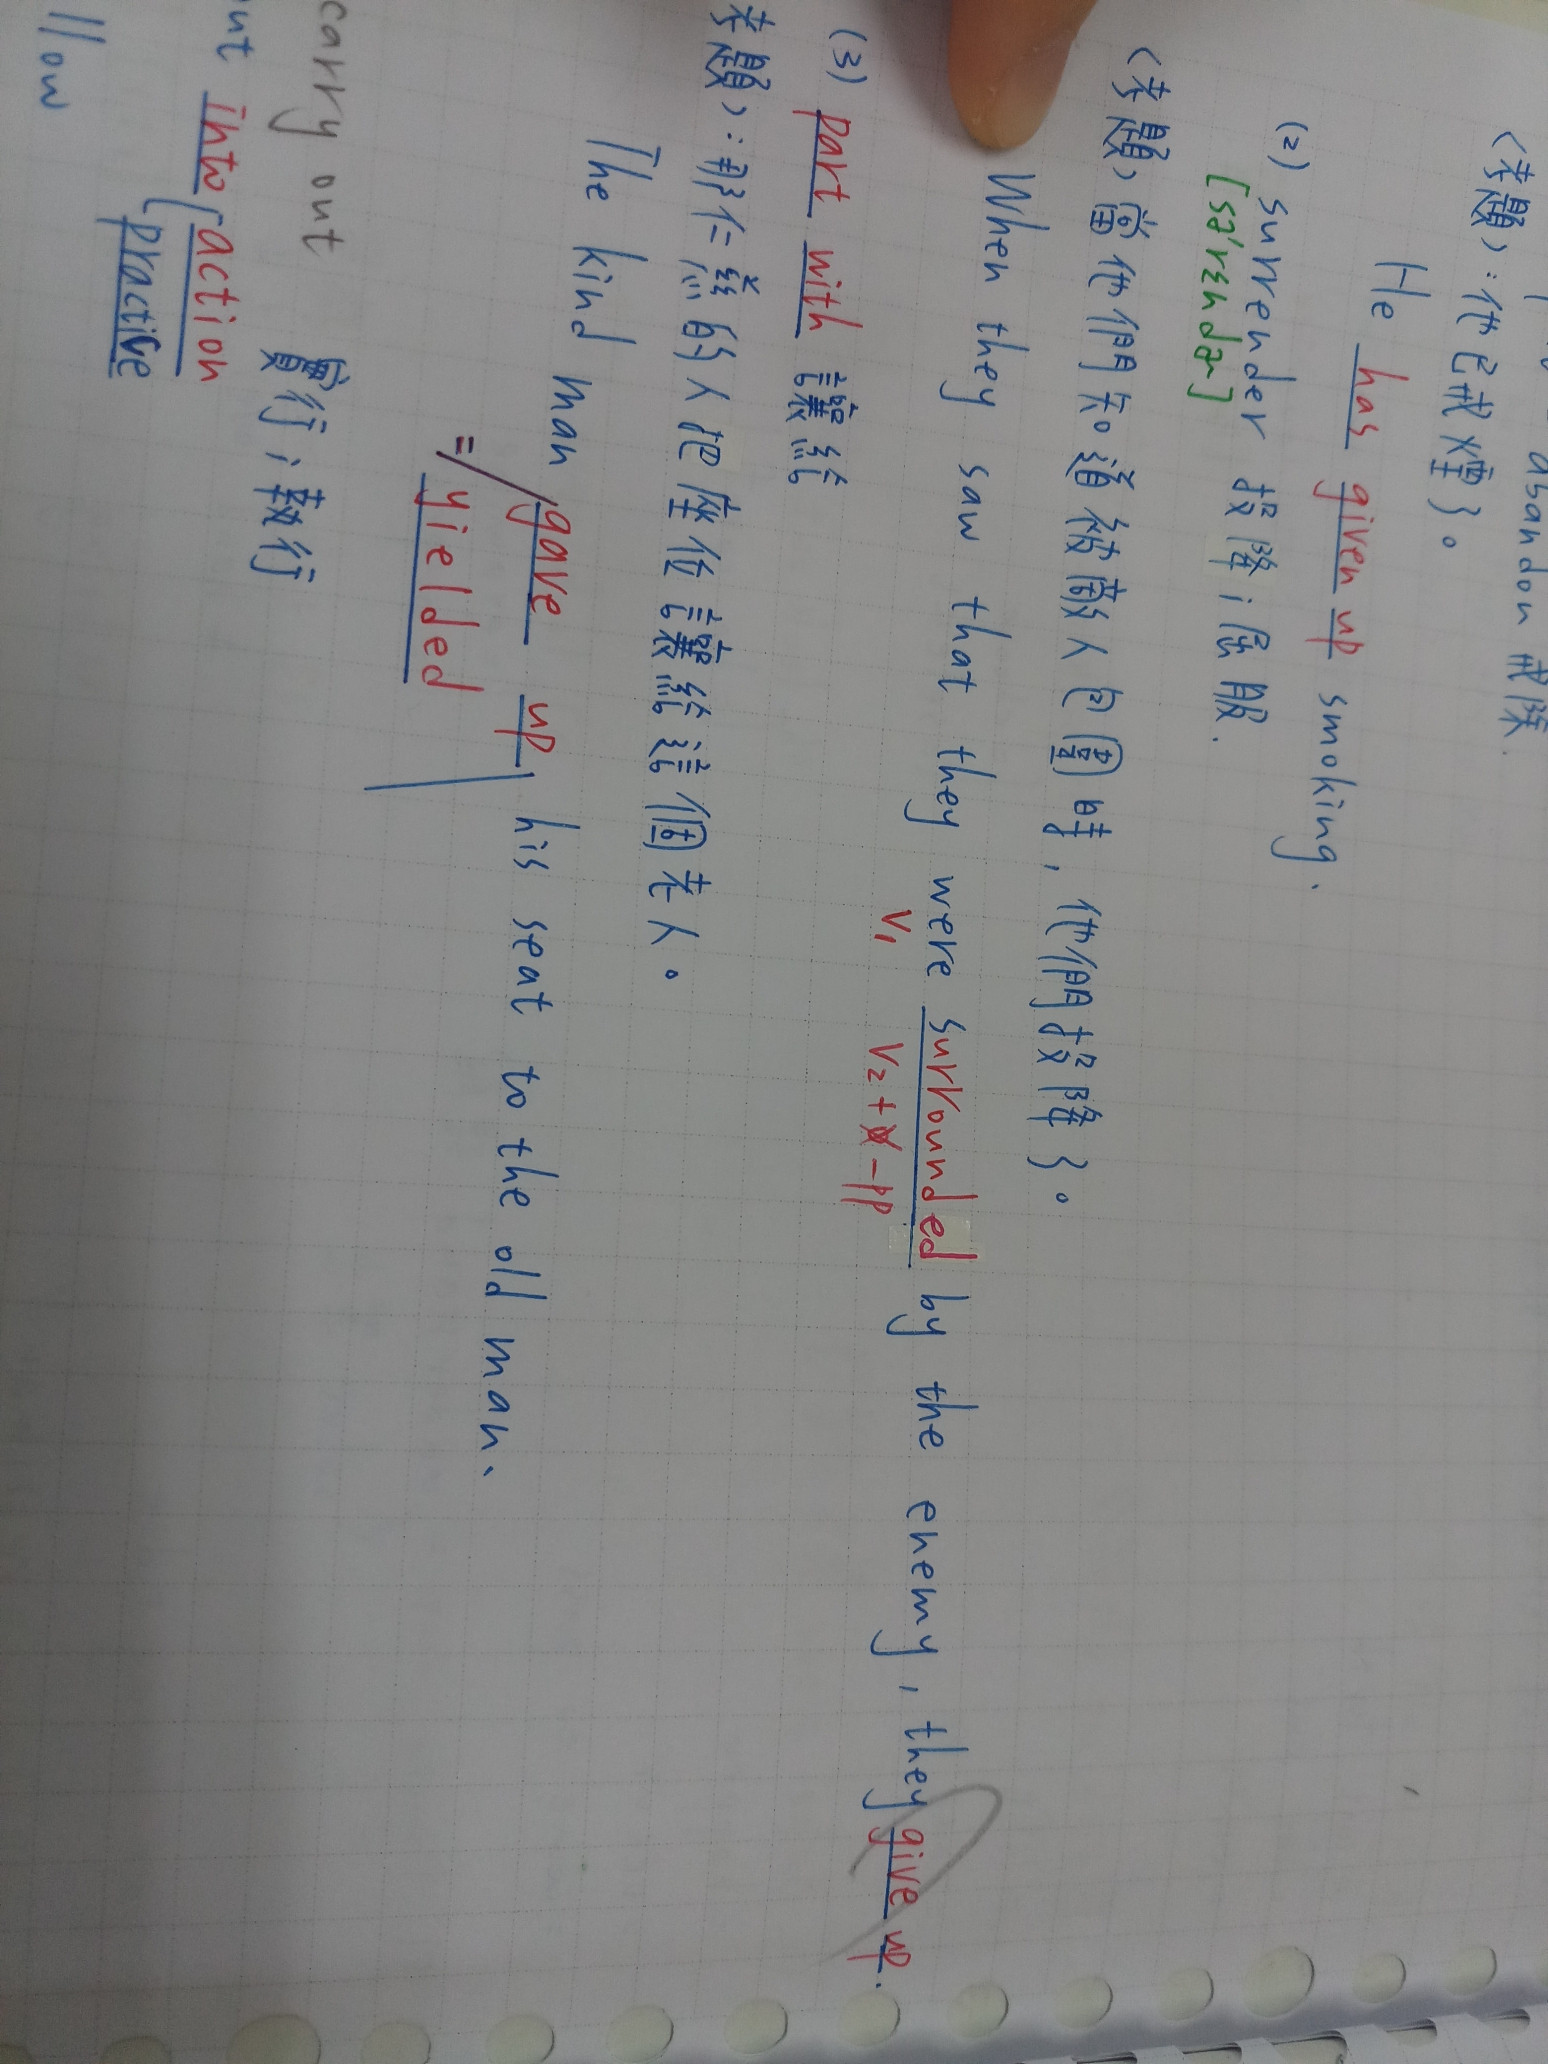 abandon 戒除.
<考題>:他已戒煙了。
He has given up smoking.
(2) surrender 投降;屈服.
[sə'rɛndɚ]
<考題>當他們知道被敵人包圍時,他們投降了。
When they saw that they were surrounded by the enemy, they give up.
V1 V2+ -pp
(3) part with 讓給
考題>:那仁慈的人把座位讓給這個老人。
The kind man gave up his seat to the old man.
= yielded
carry out 實行;執行
ut into action
practice
llow